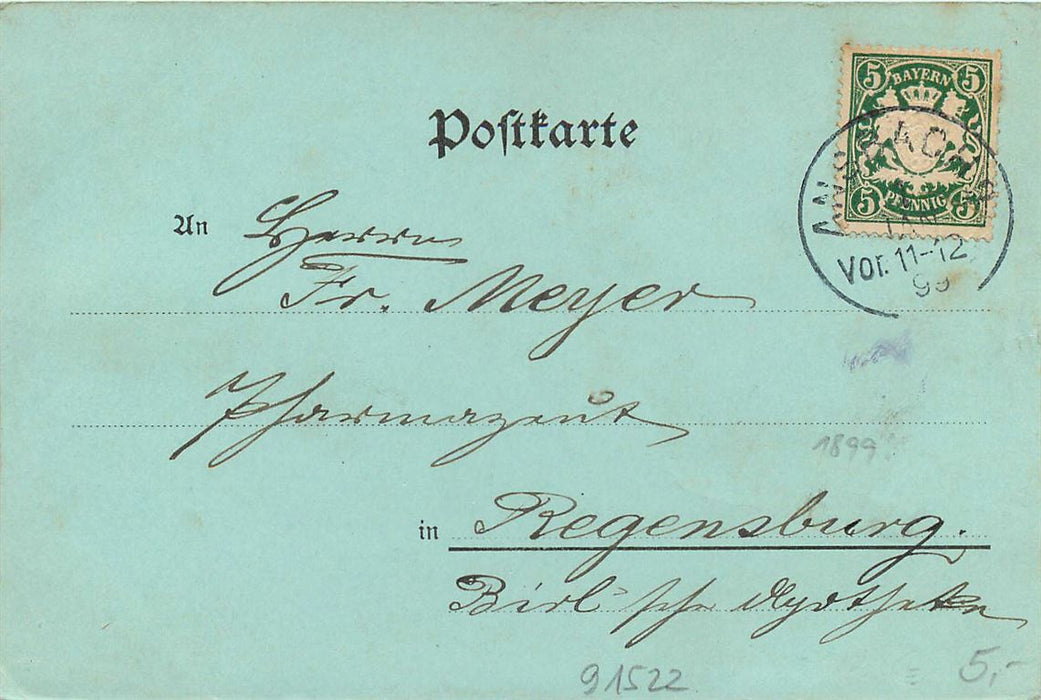 5 BAYERN 5
Postkarte
5 PFENNIG 5
Vor. 11-12
99
An Herrn
Fr. Meyer
Pharmazeut
1899
in Regensburg.
Birl'sche Apotheke
91522
5,-